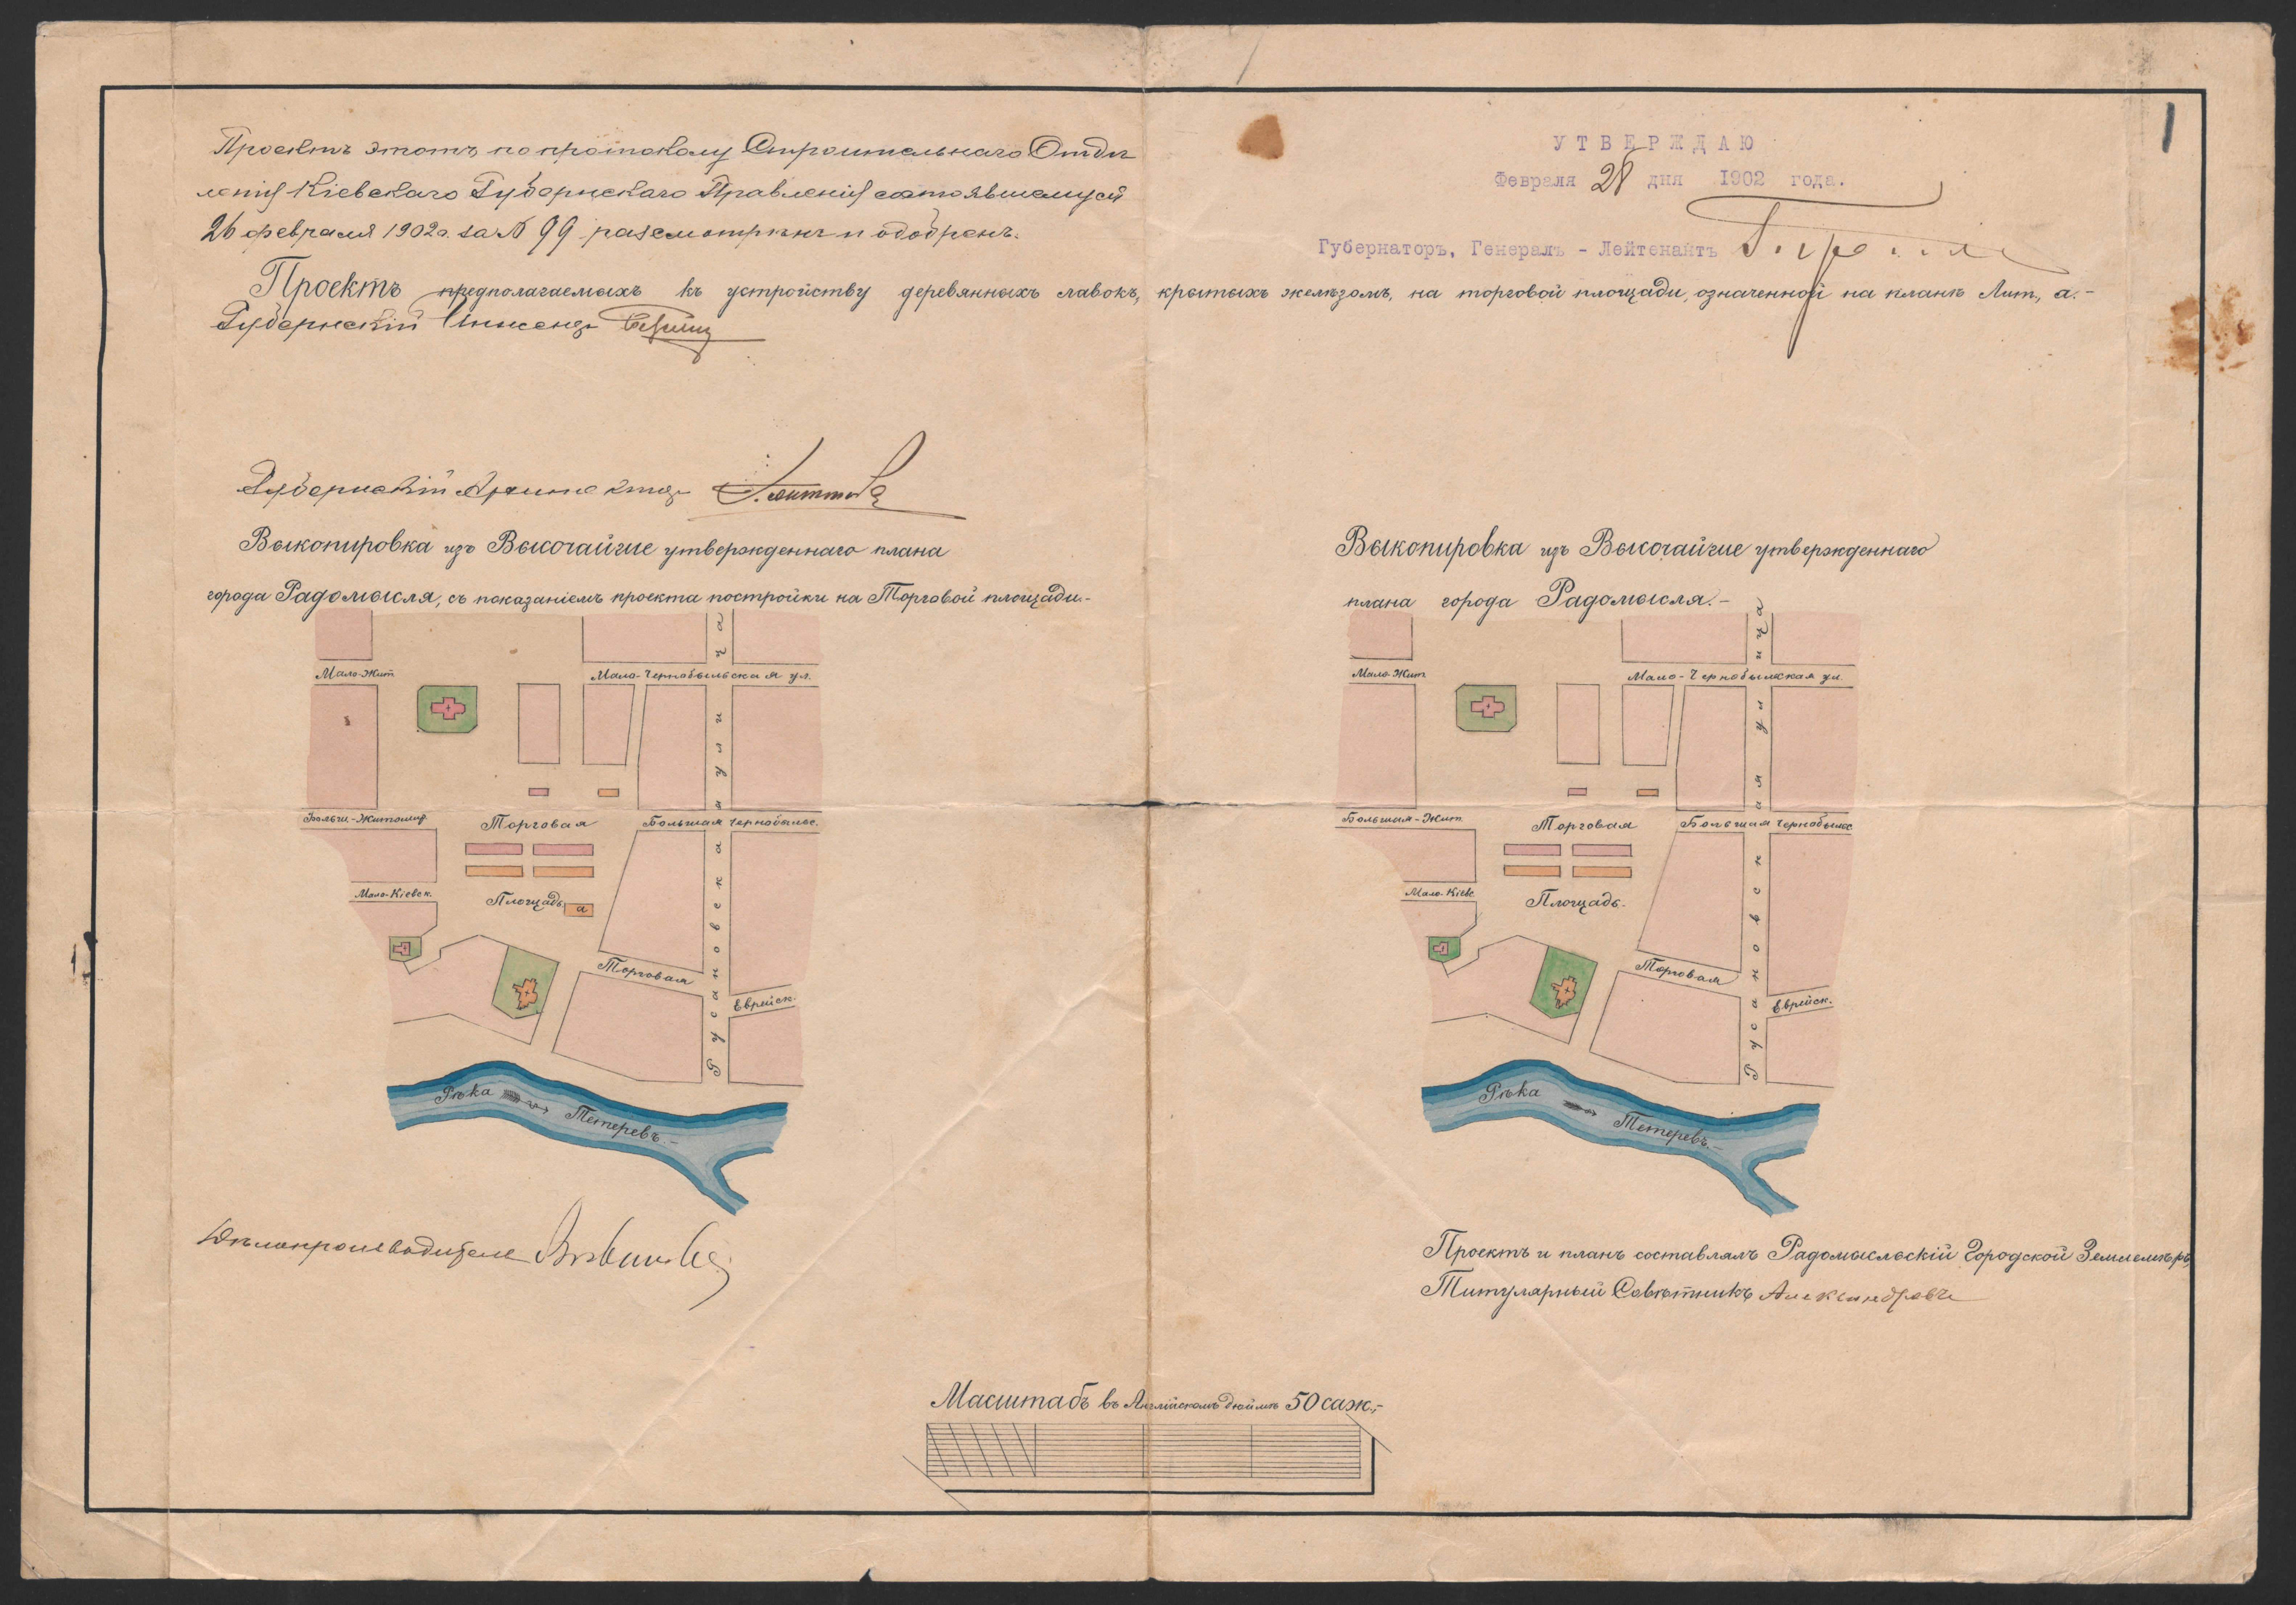 1
Проектъ этотъ по протоколу Строительнаго Отдѣ
ленія Кіевскаго Губернскаго Правленія состоявшемуся
26 февраля 1902 г. за № 99 разсмотрѣнъ и одобренъ.
УТВЕРЖДАЮ
Февраля 28 дня 1902 года.
Губернаторъ, Генералъ - Лейтенантъ
Проектъ предполагаемыхъ къ устройству деревянныхъ лавокъ, крытыхъ желѣзомъ, на торговой площади, означенной на планѣ Лит, а.-
Губернскій Инженеръ
Губернскій Архитекторъ
Выкопировка изъ Высочайше утвержденнаго плана
города Радомысля, съ показаніемъ проекта постройки на Торговой площади.-
Мало-Жит
Мало-Чернобыльская ул.
Больш.-Житомир
Торговая
Большая Чернобыльс.
Мало-Кіевск.
Площадь
а
Торговая
Еврейск.
Русановская улица
Рѣка Тетеревъ.-
Дѣлопроизводитель
Выкопировка изъ Высочайше утвержденнаго
плана города Радомысля.-
Мало-Жит
Мало-Чернобыльская ул.
Большая-Жит
Торговая
Большая Чернобыльс
Мало-Кіевс.
Площадь.
Торговая
Еврейск.
Русановская улица
Рѣка Тетеревъ.-
Проектъ и планъ составлялъ Радомысльскій Городской Землемѣръ,
Титулярный Совѣтникъ Александровъ
Масштабъ въ Англійскомъ дюймѣ 50 саж.-